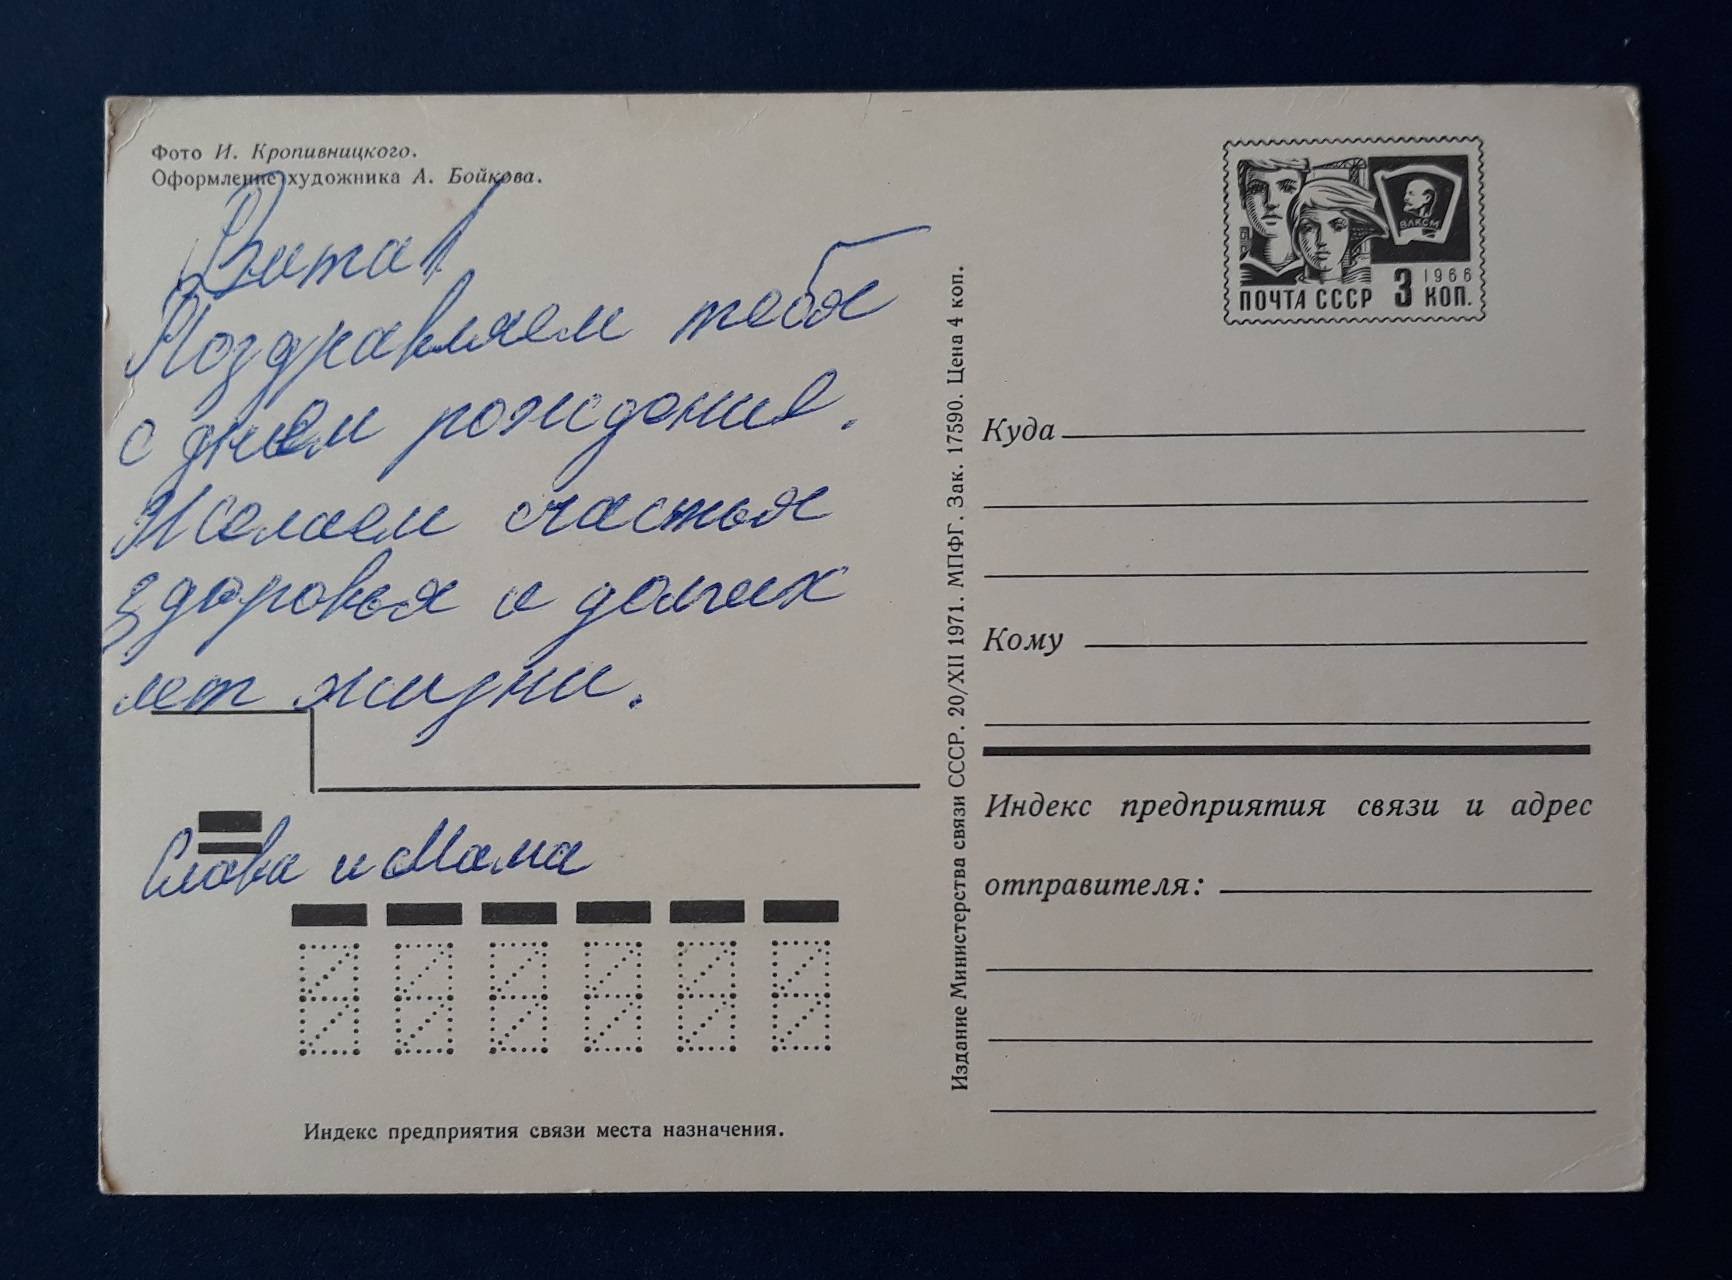 Фото И. Кропивницкого.
Оформление художника А. Бойкова.
Вита!
Поздравляем тебя
с днем рождение.
Желаем счастья
здоровья и долгих
лет жизни.
Слава и Мама
Индекс предприятия связи места назначения.
Издание Министерства связи СССР. 20/XII 1971. МПФГ. Зак. 17590. Цена 4 коп.
ВЛКСМ
1966
ПОЧТА СССР 3 КОП.
Куда
Кому
Индекс предприятия связи и адрес
отправителя: